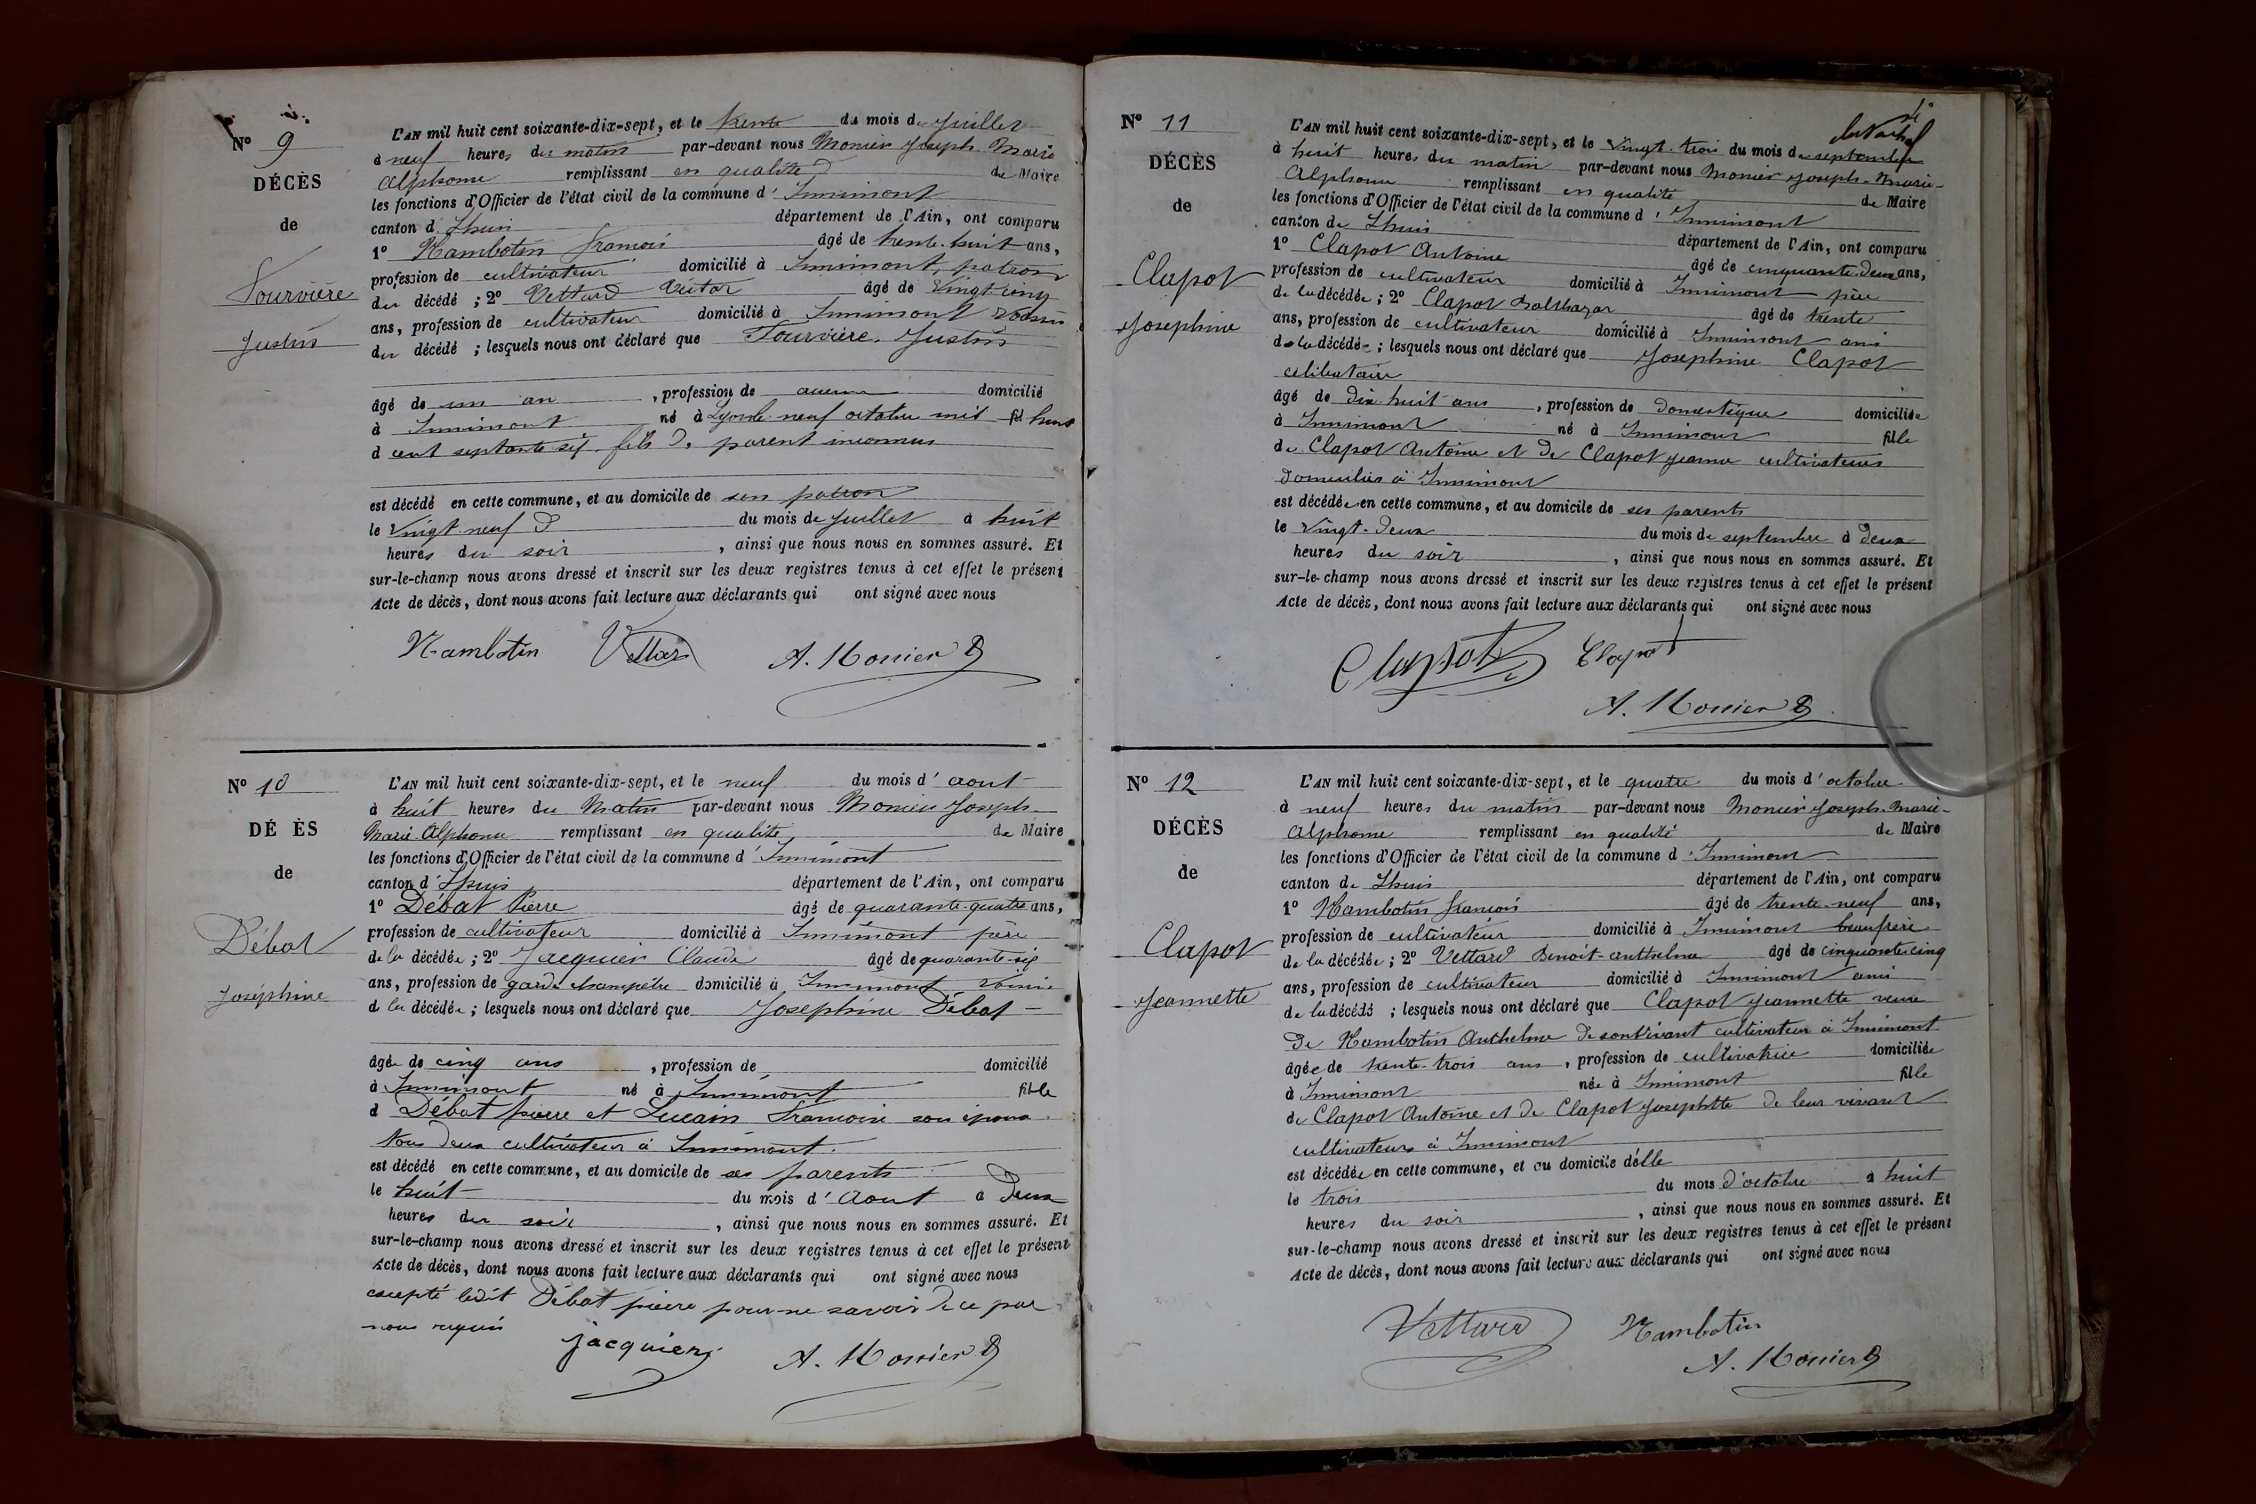 N° 9
DÉCÈS
de
Fourvière
Justin
L'AN mil huit cent soixante-dix-sept, et le trente du mois de Juillet
à neuf heures du matin par-devant nous Monier Joseph Marie
Alphonse remplissant en qualité de Maire
les fonctions d'Officier de l'état civil de la commune d'Innimont
canton d Lhuis département de l'Ain, ont comparu
1° Hambotin François âgé de trente-huit ans,
profession de cultivateur domicilié à Innimont, patron
du décédé ; 2° Vettard Victor âgé de Vingt cinq
ans, profession de cultivateur domicilié à Innimont voisin
du décédé ; lesquels nous ont déclaré que Fourvière, Justin
âgé de un an , profession de aucune domicilié
à Innimont né à Lyon le neuf octobre mil huit
d cent septante six fils de parent inconnus
est décédé en cette commune, et au domicile de son patron
le Vingt-neuf du mois de Juillet à huit
heures du soir , ainsi que nous nous en sommes assuré. Et
sur-le-champ nous avons dressé et inscrit sur les deux registres tenus à cet effet le présent
Acte de décès, dont nous avons fait lecture aux déclarants qui ont signé avec nous
Hambotin Vettard A. Monier
N° 10
DÉ ÈS
de
Débat
Joséphine
L'AN mil huit cent soixante-dix-sept, et le neuf du mois d'aout
à huit heures du Matin par-devant nous Monier Joseph-
Marie Alphonse remplissant en qualité de Maire
les fonctions d'Officier de l'état civil de la commune d'Innimont
canton d'Lhuis département de l'Ain, ont comparu
1° Débat Pierre âgé de quarante-quatre ans,
profession de cultivateur domicilié à Innimont père
de la décédée ; 2° Jacquier Claude âgé de quarante-six
ans, profession de garde champêtre domicilié à Innimont voisin
de la décédée ; lesquels nous ont déclaré que Joséphine Débat
âgée de cinq ans , profession de domicilié
à Innimont né à Innimont fille
d Débat pierre et Lucain Francoise son épouse
tous deux cultivateur à Innimont.
est décédé en cette commune, et au domicile de ses parents
le huit du mois d'Aout à Deux
heures du soir , ainsi que nous nous en sommes assuré. Et
sur-le-champ nous avons dressé et inscrit sur les deux registres tenus à cet effet le présent
Acte de décès, dont nous avons fait lecture aux déclarants qui ont signé avec nous
excepté ledit Débat pierre pour ne savoir de ce par
nous requis
jacquier A. Monier
N° 11
DÉCÈS
de
Clapot
Josephine
L'AN mil huit cent soixante-dix-sept, et le Vingt-trois du mois de septembre
à huit heures du matin par-devant nous Monier Joseph-Marie-
Alphonse remplissant en qualité de Maire
les fonctions d'Officier de l'état civil de la commune d'Innimont
canton de Lhuis département de l'Ain, ont comparu
1° Clapot Antoine âgé de cinquante-deux ans,
profession de cultivateur domicilié à Innimont père
de la décédée ; 2° Clapot Balthazar âgé de trente
ans, profession de cultivateur domicilié à Innimont ami
de la décédée ; lesquels nous ont déclaré que Josephine Clapot
célibataire
âgé de dix-huit ans , profession de Domestique domiciliée
à Innimont né à Innimont fille
de Clapot Antoine et de Clapot Jeanne cultivateurs
Domiciliés à Innimont
est décédée en cette commune, et au domicile de ses parents
le Vingt-deux du mois de septembre à deux
heures du soir , ainsi que nous nous en sommes assuré. Et
sur-le-champ nous avons dressé et inscrit sur les deux registres tenus à cet effet le présent
Acte de décès, dont nous avons fait lecture aux déclarants qui ont signé avec nous
Clapot Clapot
A. Monier
N° 12
DÉCÈS
de
Clapot
Jeannette
L'AN mil huit cent soixante-dix-sept, et le quatre du mois d'octobre
à neuf heures du matin par-devant nous Monier Joseph-Marie-
Alphonse remplissant en qualité de Maire
les fonctions d'Officier de l'état civil de la commune d'Innimont
canton de Lhuis département de l'Ain, ont comparu
1° Hambotin François âgé de trente-neuf ans,
profession de cultivateur domicilié à Innimont beaufrère
de la décédée ; 2° Vettard Benoit-anthelme âgé de cinquante cinq
ans, profession de cultivateur domicilié à Innimont ami
de la décédé ; lesquels nous ont déclaré que Clapot Jeannette veuve
De Hambotin Anthelme de son vivant cultivateur à Innimont
âgée de trente-trois ans , profession de cultivatrice domiciliée
à Innimont née à Innimont fille
de Clapot Antoine et de Clapot Josephtte de leur vivant
cultivateurs à Innimont
est décédée en cette commune, et au domicile d'elle
le trois du mois d'octobre à huit
heures du soir , ainsi que nous nous en sommes assuré. Et
sur-le-champ nous avons dressé et inscrit sur les deux registres tenus à cet effet le présent
Acte de décès, dont nous avons fait lecture aux déclarants qui ont signé avec nous
Vettard Hambotin
A. Monier